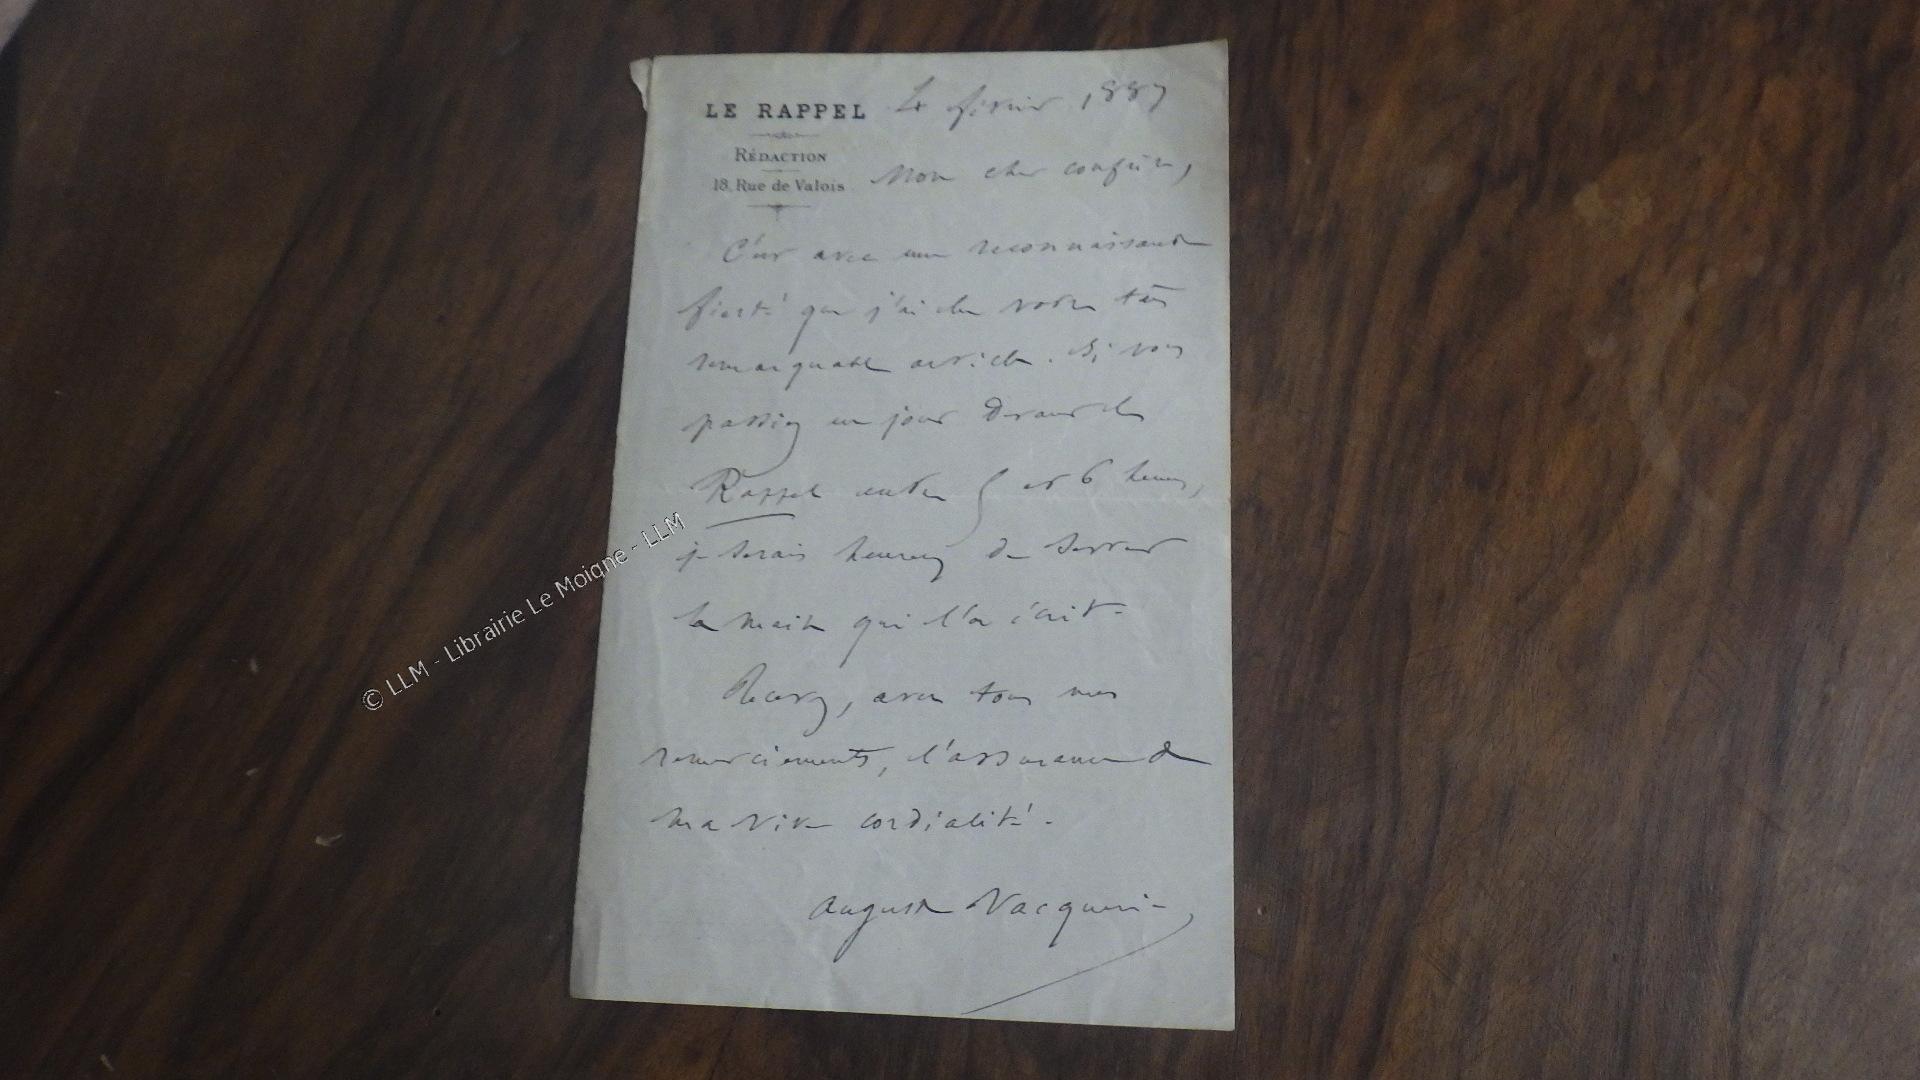 LE RAPPEL
4 février 1887
RÉDACTION
18, Rue de Valois
Mon cher confrère,
C'est avec une reconnaissante
fierté que j'ai lu votre très
remarquable article. Si vous
passiez un jour devant le
Rappel entre 5 et 6 heures,
je serais heureux de serrer
la main qui l'a écrit.
Recevez, avec tous mes
remerciements, l'assurance de
ma vive cordialité.
Auguste Vacquerie
© LLM - Librairie Le Moigne - LLM